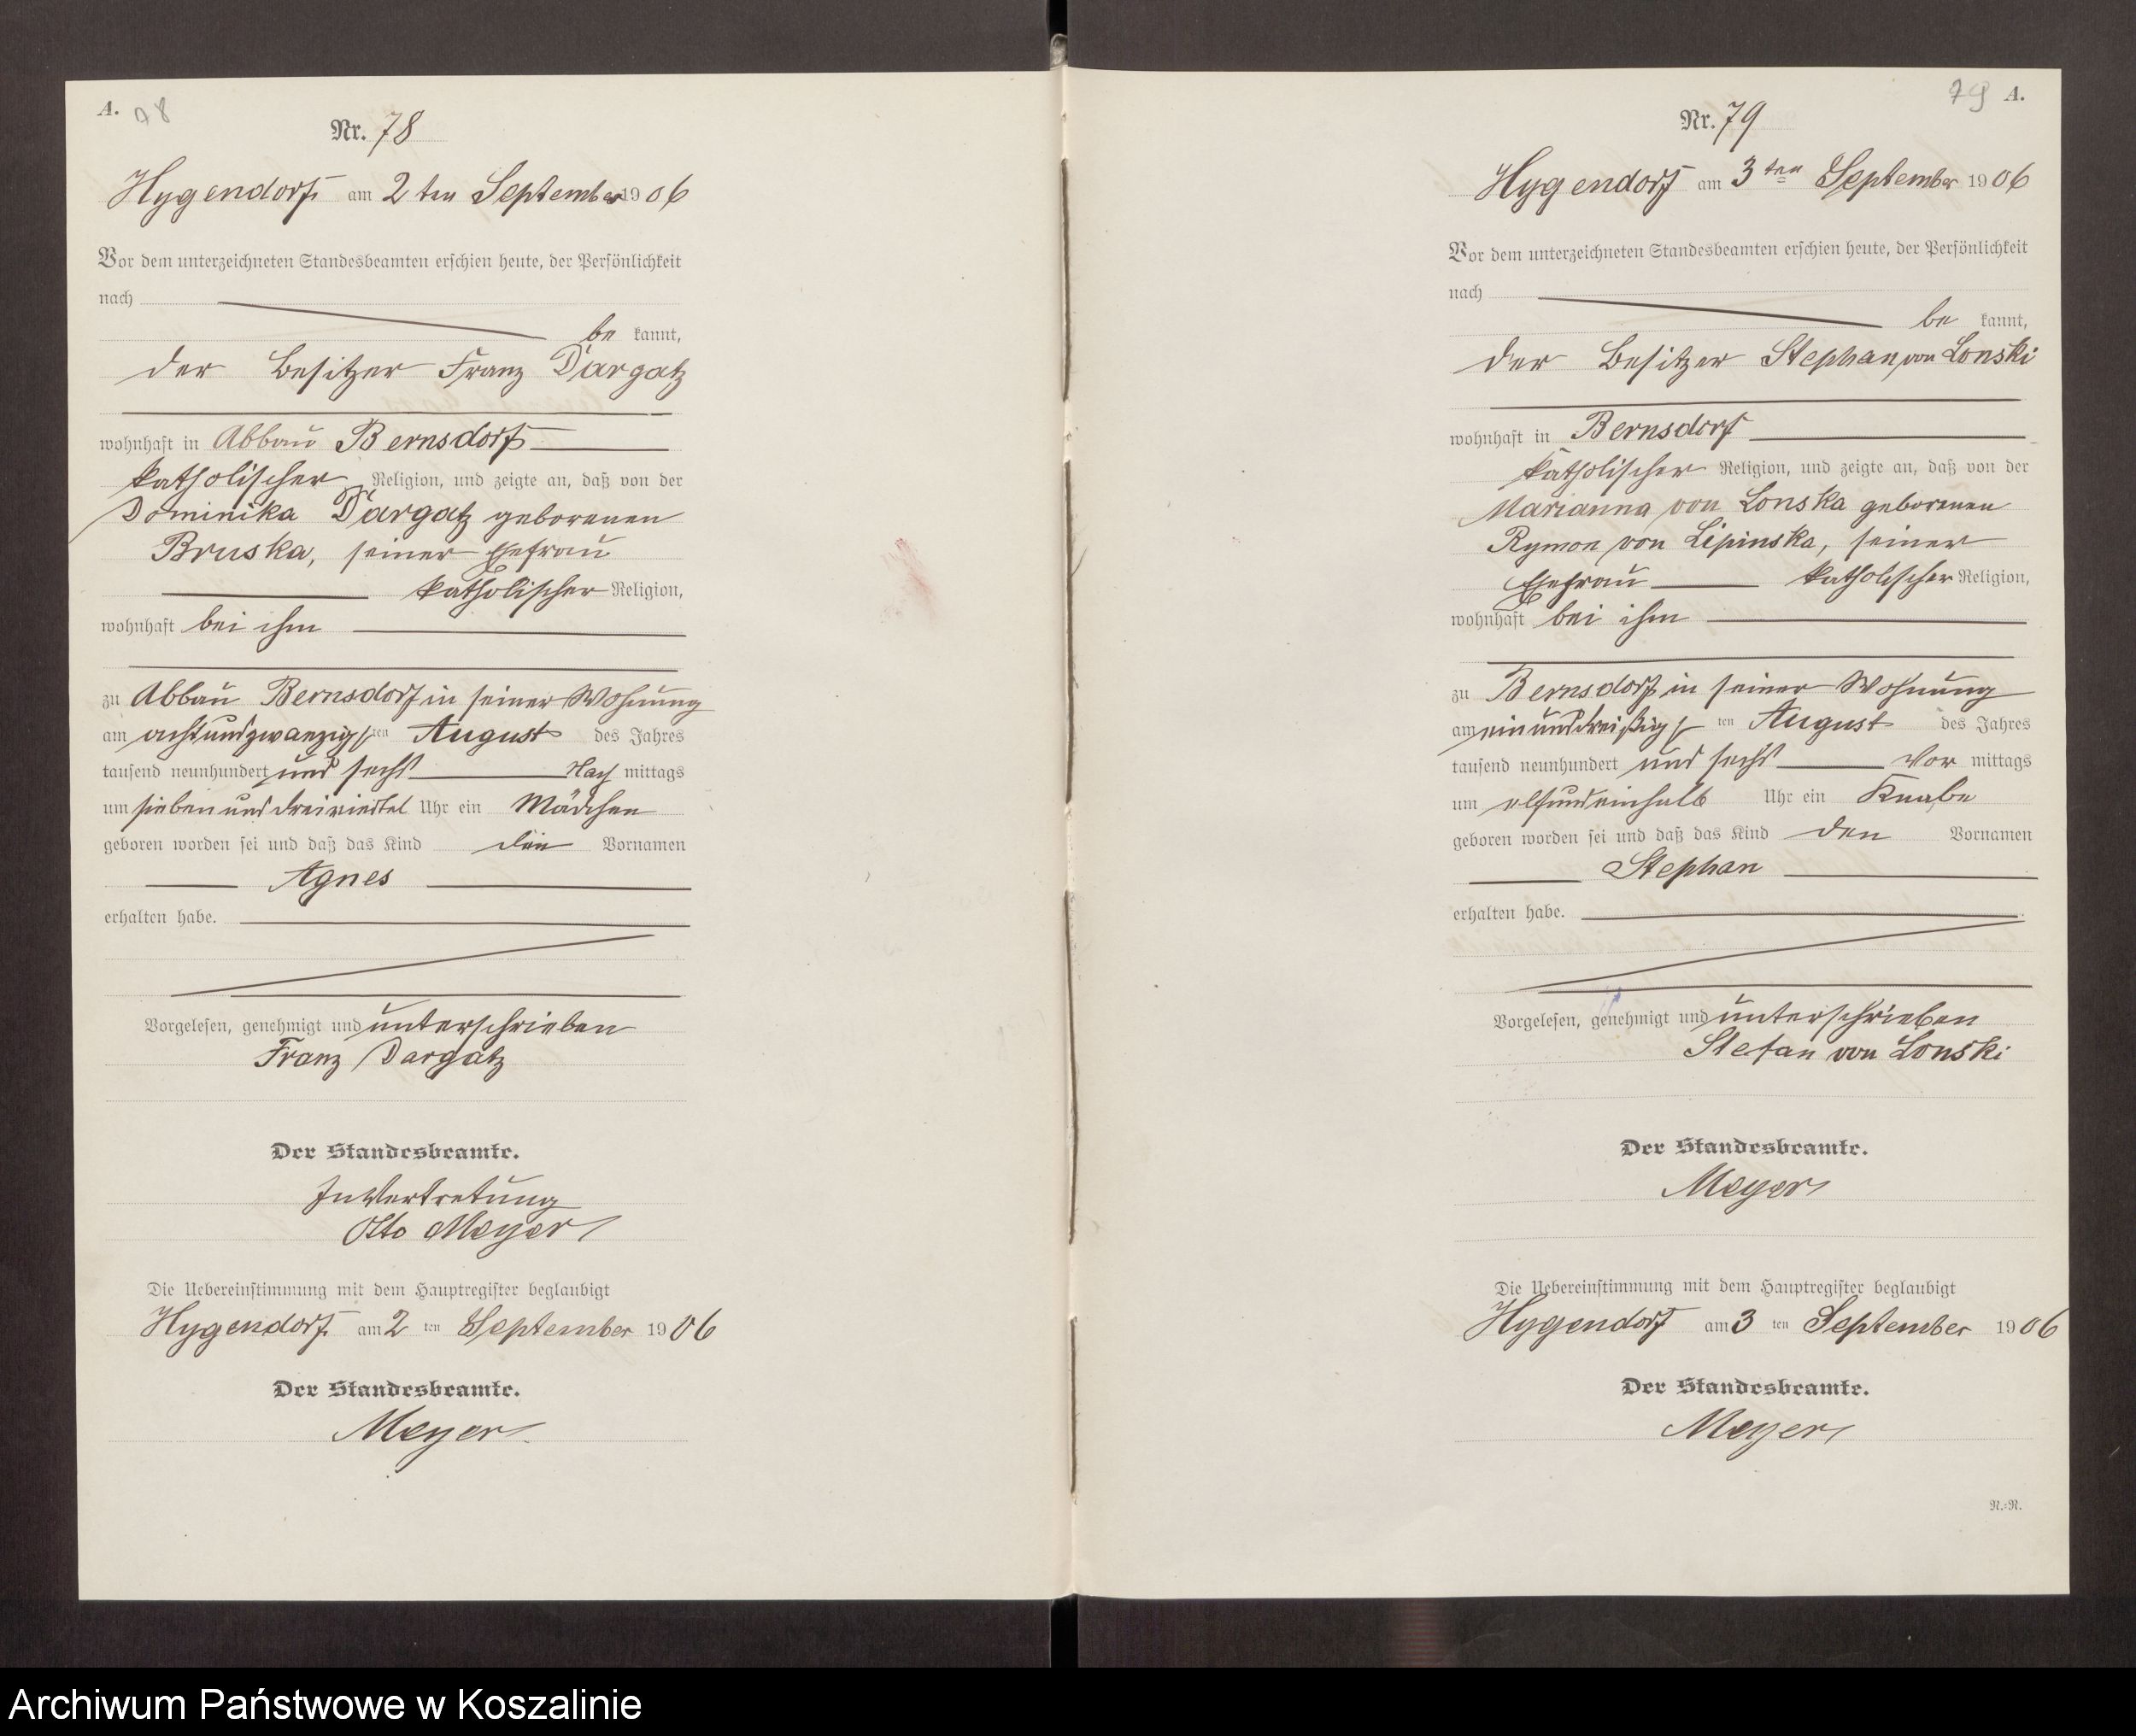 A. 78
Nr. 78
Hygendorf am 2 ten September 1906
Vor dem unterzeichneten Standesbeamten erschien heute, der Persönlichkeit
nach
be kannt,
der Besitzer Franz Dargatz
wohnhaft in Abbau Bernsdorf
katholischer Religion, und zeigte an, daß von der
Dominika Dargatz geborenen
Bruska, seiner Ehefrau
katholischer Religion,
wohnhaft bei ihm
zu Abbau Bernsdorf in seiner Wohnung
am achtundzwanzigsten August des Jahres
tausend neunhundert und sechs Nach mittags
um sieben und dreiviertel Uhr ein Mädchen
geboren worden sei und daß das Kind den Vornamen
Agnes
erhalten habe.
Vorgelesen, genehmigt und unterschrieben
Franz Dargatz
Der Standesbeamte.
In Vertretung
Otto Meyer
Die Uebereinstimmung mit dem Hauptregister beglaubigt
Hygendorf am 2 ten September 1906
Der Standesbeamte.
Meyer
79 A.
Nr. 79
Hygendorf am 3 ten September 1906
Vor dem unterzeichneten Standesbeamten erschien heute, der Persönlichkeit
nach
be kannt,
der Besitzer Stephan von Lonski
wohnhaft in Bernsdorf
katholischer Religion, und zeigte an, daß von der
Marianna von Lonska geborenen
Rymon von Lipinska, seiner
Ehefrau katholischer Religion,
wohnhaft bei ihm
zu Bernsdorf in seiner Wohnung
am einunddreißigsten August des Jahres
tausend neunhundert und sechs Vor mittags
um elfundeinhalb Uhr ein Knabe
geboren worden sei und daß das Kind den Vornamen
Stephan
erhalten habe.
Vorgelesen, genehmigt und unterschrieben
Stefan von Lonski
Der Standesbeamte.
Meyer
Die Uebereinstimmung mit dem Hauptregister beglaubigt
Hygendorf am 3 ten September 1906
Der Standesbeamte.
Meyer
N.=N.
Archiwum Państwowe w Koszalinie